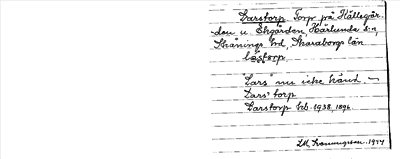 Larstorp Torp på Hällegår-
den u. Ekgården, Härlunda s:n,
Skånings hd, Skaraborgs län
lastorp.
Lars' nu icke känd —
Lars' torp
Larstorp hb. 1938, 1896.
1977